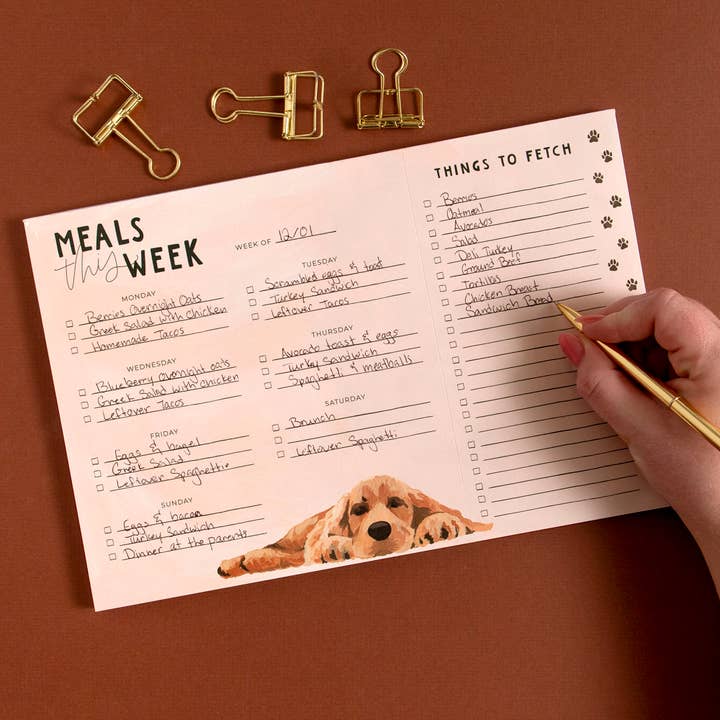 MEALS
this WEEK
WEEK OF 12/01
MONDAY
Berries Overnight Oats
Greek Salad with Chicken
Homemade Tacos
TUESDAY
Scrambled eggs & toast
Turkey Sandwich
Leftover Tacos
WEDNESDAY
Blueberry Overnight oats
Greek Salad with chicken
Leftover Tacos
THURSDAY
Avocado toast & eggs
Turkey Sandwich
Spaghetti & meatballs
FRIDAY
Eggs & bagel
Greek Salad
Leftover Spaghettie
SATURDAY
Brunch
Leftover Spaghetti
SUNDAY
Eggs & bacon
Turkey Sandwich
Dinner at the parents
THINGS TO FETCH
Berries
Oatmeal
Avocados
Salad
Deli Turkey
Ground Beef
Tortillas
Chicken Breast
Sandwich Bread